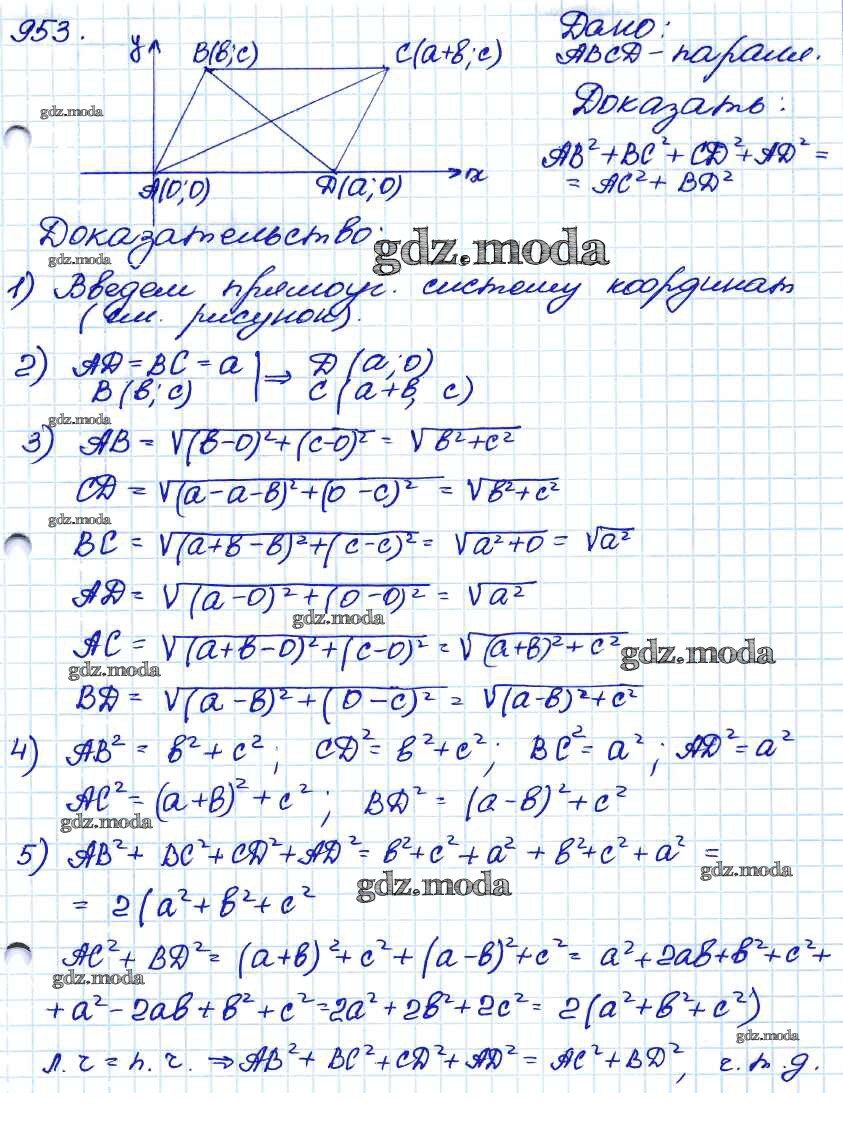 953.
у
B(в;с)
C(a+в;с)
A(0;0)
D(a;0)
x
Дано:
ABCD - паралл.
Доказать:
AB²+BC²+CD²+AD²=
= AC²+BD²
gdz.moda
Доказательство:
gdz.moda
gdz.moda
1) Введем прямоуг. систему координат
(см. рисунок).
2) AD = BC = a | ⇒ D (a;0)
B (в; с) C (a+в, c)
gdz.moda
3) AB = √(в-0)²+(с-0)² = √в²+с²
CD = √(a-a-в)²+(0-с)² = √в²+с²
gdz.moda
BC = √(a+в-в)²+(с-с)² = √a²+0 = √a²
AD = √(a-0)²+(0-0)² = √a²
gdz.moda
AC = √(a+в-0)²+(с-0)² = √(a+в)²+с²
gdz.moda
gdz.moda
BD = √(a-в)²+(0-с)² = √(a-в)²+с²
4) AB² = в²+с²; CD² = в²+с²; BC² = a²; AD² = a²
AC² = (a+в)²+с²; BD² = (a-в)²+с²
gdz.moda
5) AB²+ BC²+CD²+AD² = в²+с²+a²+в²+с²+a² =
gdz.moda
gdz.moda
= 2(a²+в²+с²
AC²+ BD² = (a+в)²+с²+(a-в)²+с² = a²+2aв+в²+с²+
gdz.moda
+a²-2aв+в²+с²=2a²+2в²+2с² = 2(a²+в²+с²)
gdz.moda
л.ч = п.ч. ⇒ AB²+ BC²+CD²+AD² = AC²+BD², ч.т.д.